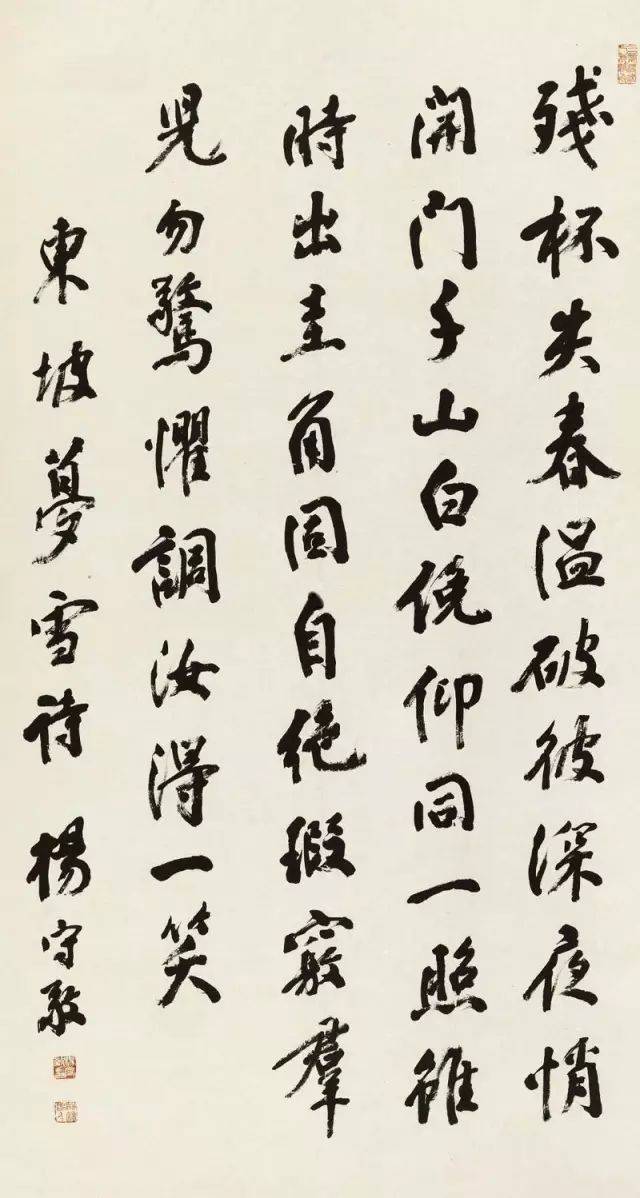 殘杯失春溫破彼深夜悄
開門千山白俛仰同一照雖
時出圭角固自絕瑕竅羣
兒勿驚懼調汝得一笑
東坡夢雪詩 楊守敬